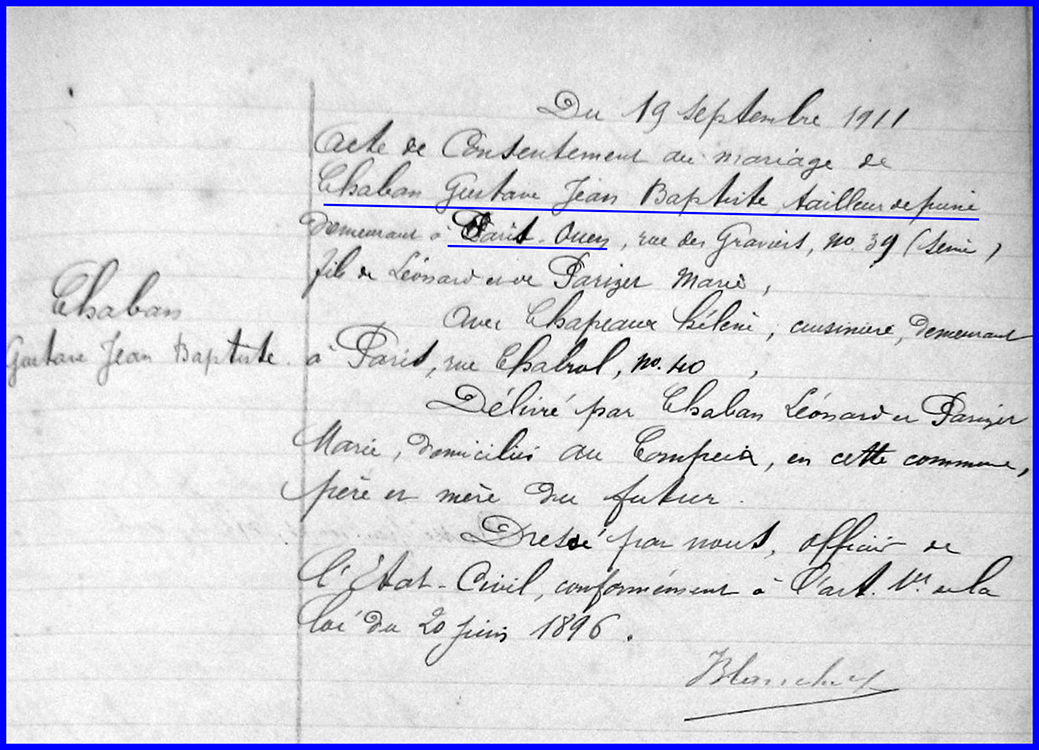 Du 19 septembre 1911
Acte de Consentement au mariage de
Chaban Gustave Jean Baptiste tailleur de pierre
demeurant à Paris-Ouen, rue des Graviers, no. 39 (Seine)
fils de Léonard et de Parizer Marie,
Avec Chapeaux Hélène, cuisinière, demeurant
à Paris, rue Chabrol, no. 40,
Délivré par Chaban Léonard et Parizer
Marie, domiciliés au Compeix, en cette commune,
père et mère du futur.
Dressé par nous, officier de
l'Etat-Civil, conformément à l'art. 1er de la
loi du 20 juin 1896.
Chaban
Gustave Jean Baptiste.